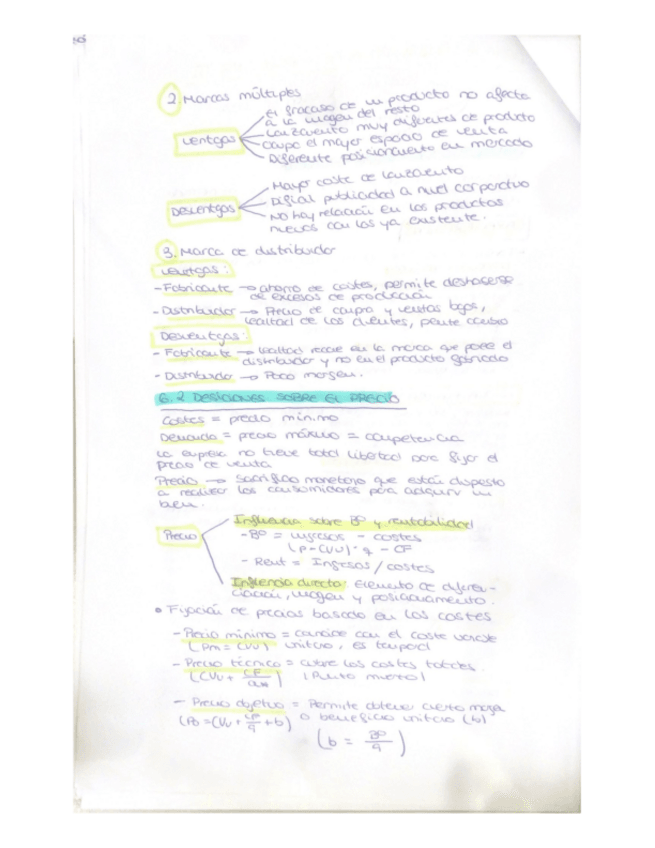 2. Marcas múltiples
Ventajas
El fracaso de un producto no afecta
a la imagen del resto
Lanzamiento muy diferentes de producto
Ocupa el mayor espacio de venta
Diferente posicionamiento en mercado
Desventajas
Mayor coste de lanzamiento
Difícil publicidad a nivel corporativo
No hay relación en los productos
nuevos con los ya existente.
3. Marca de distribuidor
Ventajas:
- Fabricante → ahorro de costes, permite deshacerse
de excesos de producción
- Distribuidor → Precio de compra y ventas bajos,
lealtad de los clientes,
Desventajas:
- Fabricante → lealtad recae en la marca que pone el
distribuidor y no en el producto fabricado
- Distribuidor → Poco margen.
6.2 Desiciones sobre el precio
Costes = precio mínimo
Demanda = precio máximo = competencia
La empresa no tiene total libertad para fijar el
precio de venta
Precio → Sacrificio monetario que están dispuesto
a realizar los consumidores para adquirir un
bien.
Precio
Influencia sobre Bº y rentabilidad
- Bº = ingresos - costes
(P - CVU) · q - CF
- Rent = Ingresos / costes
Influencia directa: Elemento de diferen-
ciación, imagen y posicionamiento.
• Fijación de precios basado en los costes
- Precio mínimo = coincide con el coste variable
(Pm = CVU) unitario, es temporal
- Precio técnico = cubre los costes totales.
(CVU + CF/ ) (Punto muerto)
- Precio objetivo = Permite obtener cierto margen
(Po = CVU + CF/q + b) o beneficio unitario (b)
(b = Bº/q)